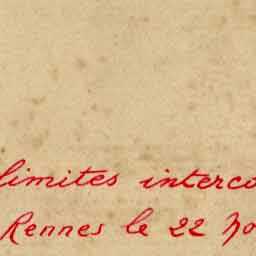 limites interco
Rennes le 22 No